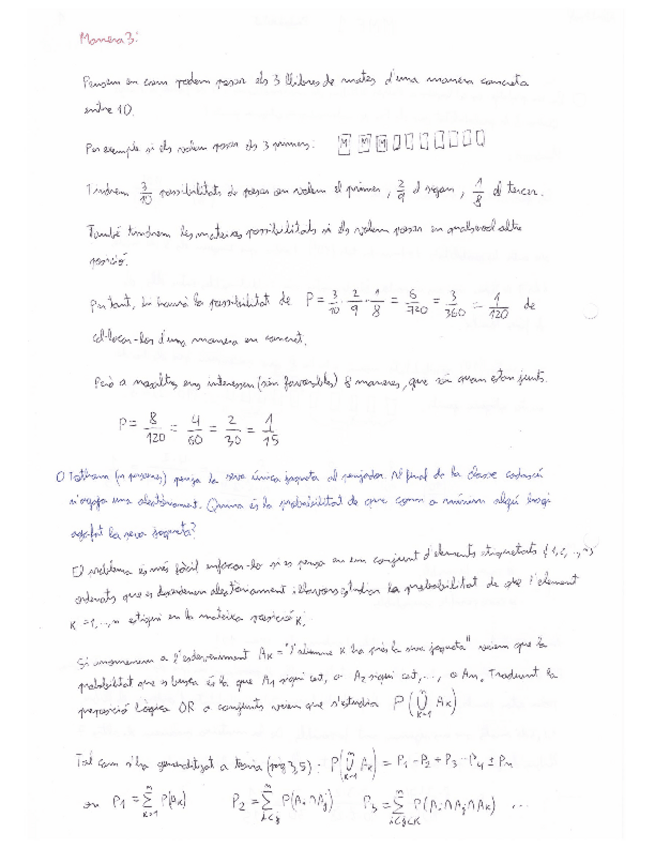 Manera 3:
Pensem en com podem posar els 3 llibres de mates d'una manera concreta
entre 10.
Per exemple si els volem posar els 3 primers: M M M
Tindrem 3/10 possibilitats de posar on volem el primer, 2/9 el segon, 1/8 el tercer.
També tindrem les mateixes possibilitats si els volem posar en qualsevol altre
posició.
Per tant, hi haurà la possibilitat de P = 3/10 · 2/9 · 1/8 = 6/720 = 3/360 = 1/120 de
col·locar-los d'una manera en concret.
Però a nosaltres ens interessen (són favorables) 8 maneres, que són quan estan junts.
P = 8/120 = 4/60 = 2/30 = 1/15
Tothom (n persones) penja la seva única jaqueta al penjador. Al final de la classe cadascú
n'agafa una aleatòriament. Quina és la probabilitat de que com a mínim algú hagi
agafat la seva jaqueta?
El problema és més fàcil enfocar-lo si es pensa en un conjunt d'elements etiquetats {1,2, ..., n}
ordenats que es desordenen aleatòriament i llavors estudiar la probabilitat de que l'element
K = 1, ..., n estigui en la mateixa posició K.
Si anomenem a l'esdeveniment AK = "l'alumne K ha pres la seva jaqueta" veiem que la
probabilitat que es busca és la que A1 sigui cert, o A2 sigui cert, ..., o An. Traduint la
proposició lògica OR a conjunts veiem que s'estudia P(⋃ₖ₌₁ⁿ AK)
Tal com s'ha generalitzat a teoria (pàg 3,5): P(⋃ₖ₌₁ⁿ AK) = P1 - P2 + P3 - P4 ± Pn
on P1 = ∑ₖ₌₁ⁿ P(AK) P2 = ∑ⁿ i<j P(Ai ∩ Aj) P3 = ∑ⁿ i<j<K P(Ai ∩ Aj ∩ AK) ...